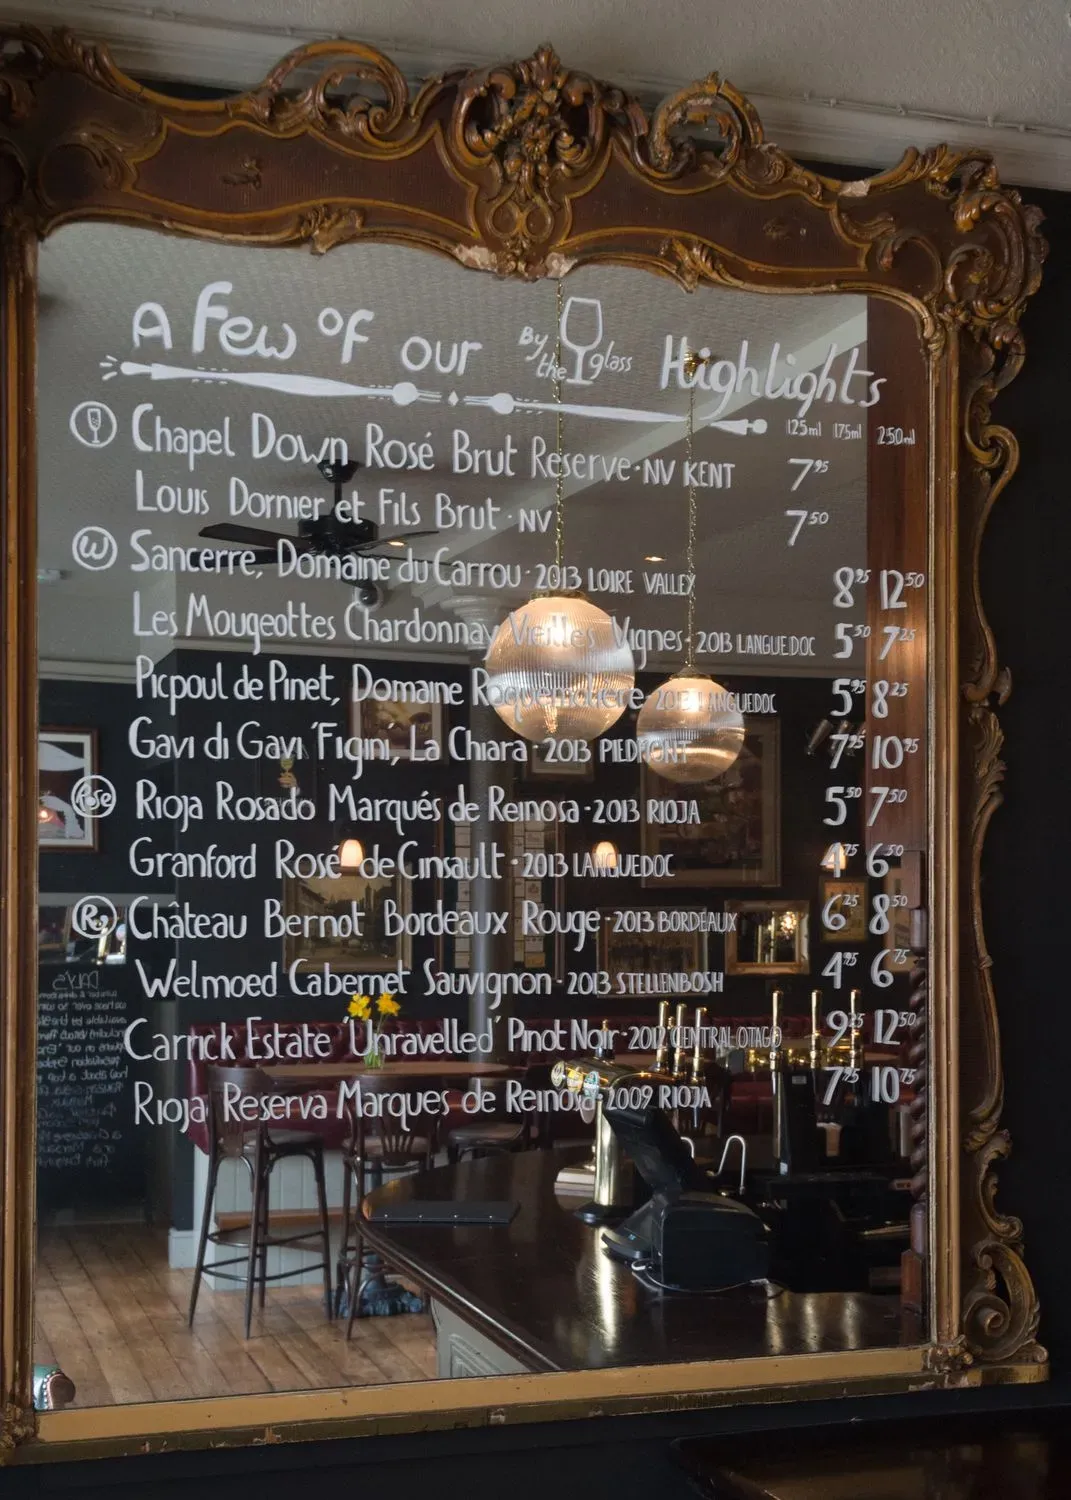 A Few of our By the glass Highlights
125ml 175ml 250ml
Chapel Down Rosé Brut Reserve · NV KENT 7.95
Louis Dornier et Fils Brut · NV 7.50
W Sancerre, Domaine du Carrou · 2013 LOIRE VALLEY 8.95 12.50
Les Mougeottes Chardonnay Vieilles Vignes · 2013 LANGUEDOC 5.50 7.25
Picpoul de Pinet, Domaine 2013 LANGUEDOC 5.95 8.25
Gavi di Gavi 'Figini', La Chiara · 2013 PIEDMONT 7.95 10.95
Rose Rioja Rosado Marqués de Reinosa · 2013 RIOJA 5.50 7.50
Granford Rosé de Cinsault · 2013 LANGUEDOC 4.75 6.50
R Château Bernot Bordeaux Rouge · 2013 BORDEAUX 6.25 8.50
Welmoed Cabernet Sauvignon · 2013 STELLENBOSH 4.95 6.75
Carrick Estate 'Unravelled' Pinot Noir · 2012 CENTRAL OTAGO 9.25 12.50
Rioja Reserva Marques de Reinosa · 2009 RIOJA 7.95 10.75